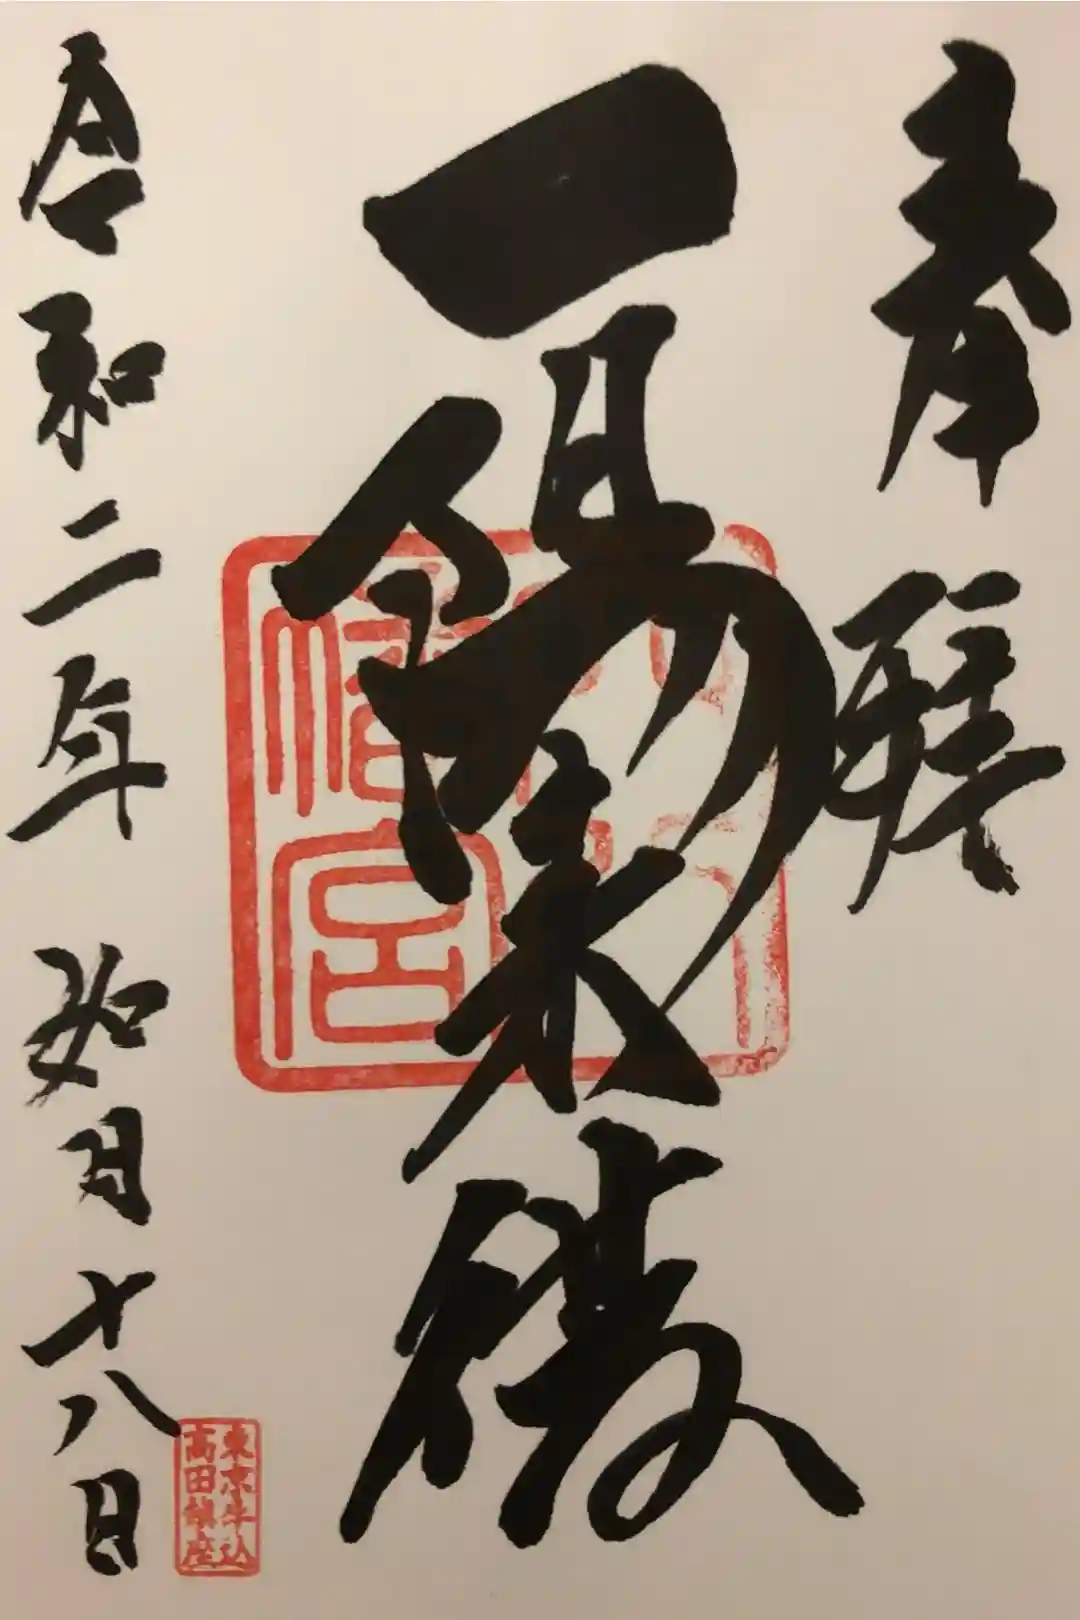 奉拝
一陽来復
令和二年 如月十八日
幡宮
東京牛込
高田鎮座